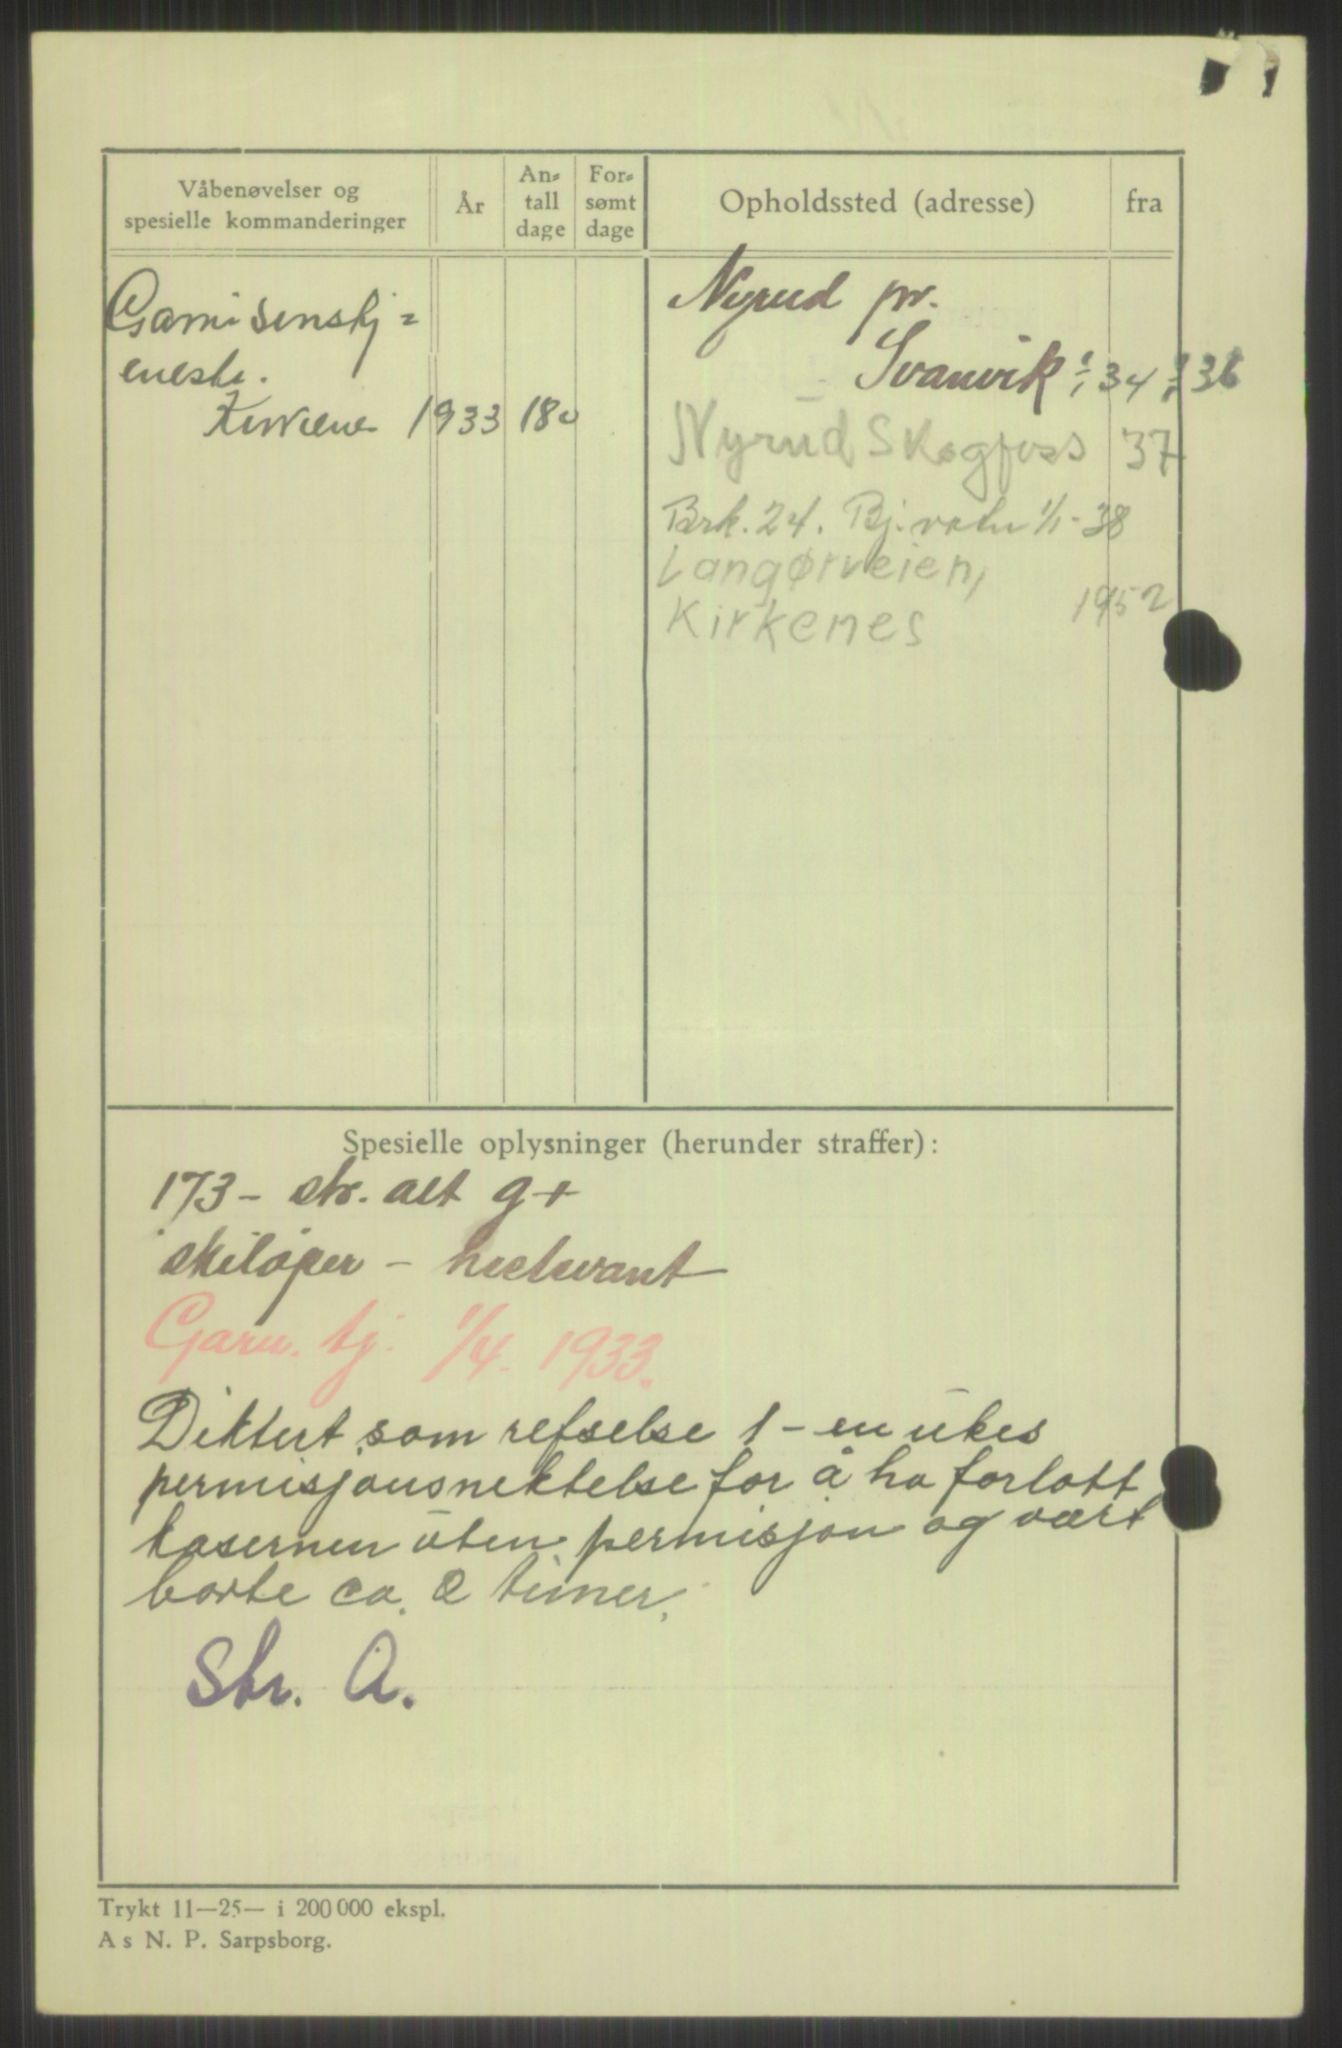 Våbenøvelser og
spesielle kommanderinger
År
An-
tall
dage
For-
sømt
dage
Opholdssted (adresse)
fra
Garnisonstj=
eneste.
Kirkenes 1933 180
Nyrud pr.
Svanvik 1/1 34 36
Nyrud Skogfoss 37
Brk. 24. Bj.vatn 1/1-38
Langørveien,
Kirkenes 1952
Spesielle oplysninger (herunder straffer):
173 - str. alt g+
skiløper -
Garn. tj. 1/4. 1933.
Diktert som refselse 1 - en ukes
permisjonsnektelse for å ha forlatt
kasernen uten permisjon og vært
borte ca. 2 timer.
Str. A.
Trykt 11—25— i 200 000 ekspl.
A s N. P. Sarpsborg.